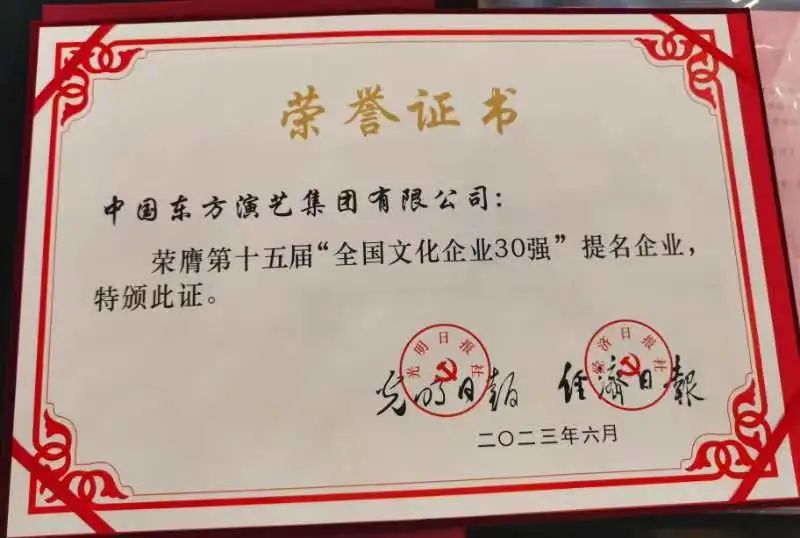 荣誉证书
中国东方演艺集团有限公司：
荣膺第十五届“全国文化企业30强”提名企业，
特颁此证。
光明日报社
经济日报社
光明日報 经濟日報
二〇二三年六月